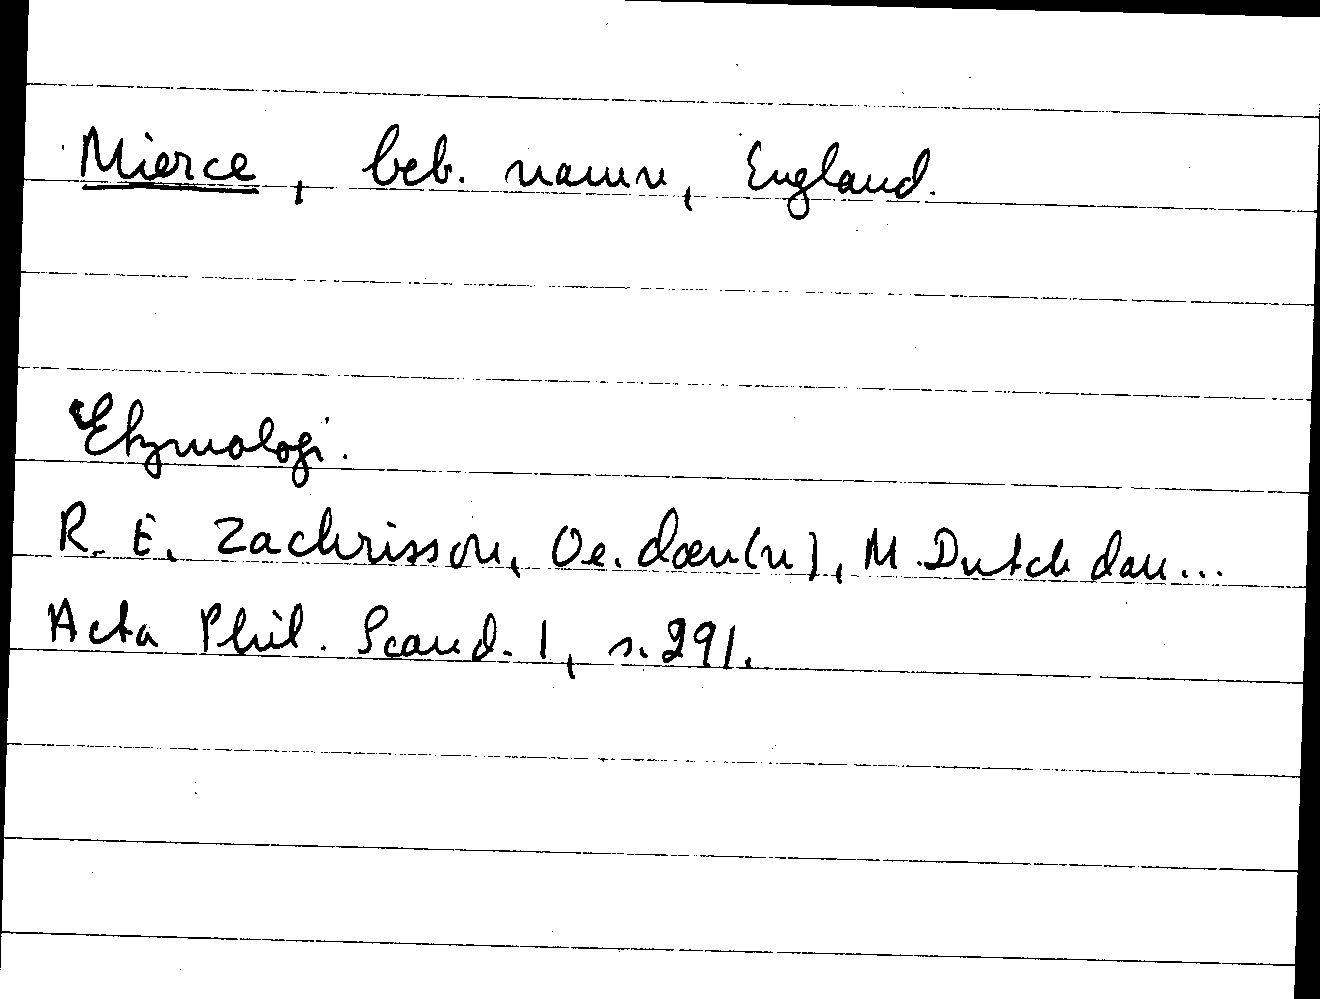 Mierce, beb. namn, England.
Etymologi.
R. E. Zachrisson, Oe. dæn(n), M. Dutch dan...
Acta Phil. Scand. 1, s. 291.